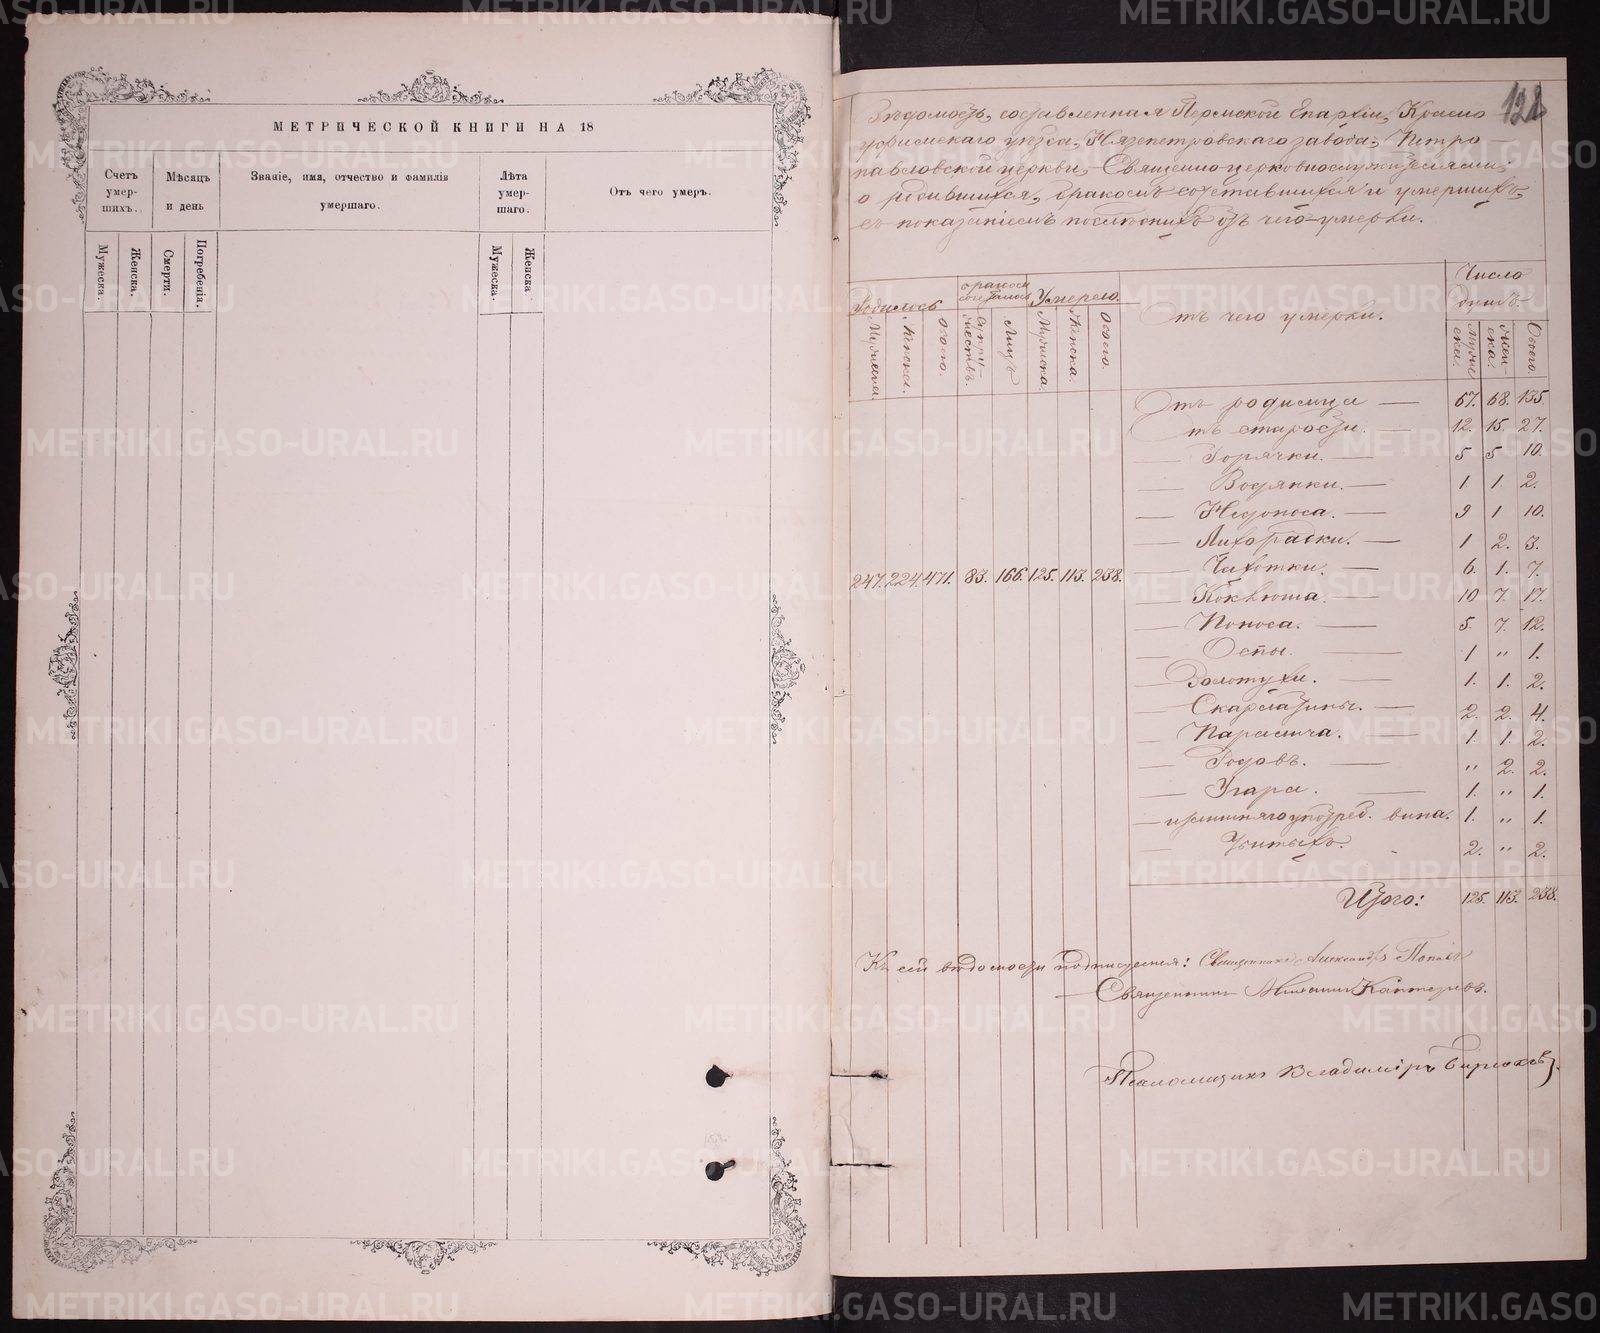 МЕТРИЧЕСКОЙ КНИГИ НА 18
Счетъ умер-шихъ.
Мѣсяцъ и день
Званіе, имя, отчество и фамилія умершаго.
Лѣта умер-шаго.
Отъ чего умеръ.
Мужеска.
Женска.
Смерти.
Погребенія.
Мужеска.
Женска
128
Вѣдомость, составленная Пермской Епархіи, Красно
уфимскаго уѣзда, Нязепетровскаго завода, Петро
павловской церкви, Священно-церковнослужителями,
о родившихся, бракомъ сочетавшихся и умершихъ,
съ показаніемъ послѣднихъ отъ чего умерли.
Родилось
Бракомъ сочеталось
Умерло.
Отъ чего умерли.
Число душъ.
Мужеска.
Женска.
Обоего.
Супружествъ.
Лицъ
Мужеска.
Женска.
Обоего.
Мужеска.
Женска.
Обоего.
Отъ родимца — 67. 68. 135.
Отъ старости. — 12. 15. 27.
— Горячки. — 5 5. 10.
— Водянки. — 1. 1. 2.
— Недоноса. — 9 1 10.
— Лихорадки. — 1 2. 3.
— Чахотки. — 6. 1. 7.
247. 224. 471. 83. 166. 125. 113. 238.
— Коклюша. — 10 7. 17.
— Поноса. — 5. 7. 12.
— Оспы. 1 " 1.
— Золотухи. — 1. 1. 2.
— Скарлатины. — 2. 2. 4.
— Паралича. — 1. 1. 2.
— Родовъ. — " 2. 2.
— Угара. — 1. " 1.
— излишняго употреб. вина. 1. " 1.
— Убитыхъ. 2. " 2.
Итого: 125. 113. 238.
Къ сей вѣдомости подписуемся: Священникъ Александръ Поповъ
Священникъ Михаилъ Кантеровъ.
Псаломщикъ Владиміръ Бирюковъ.
METRIKI.GASO-URAL.RU